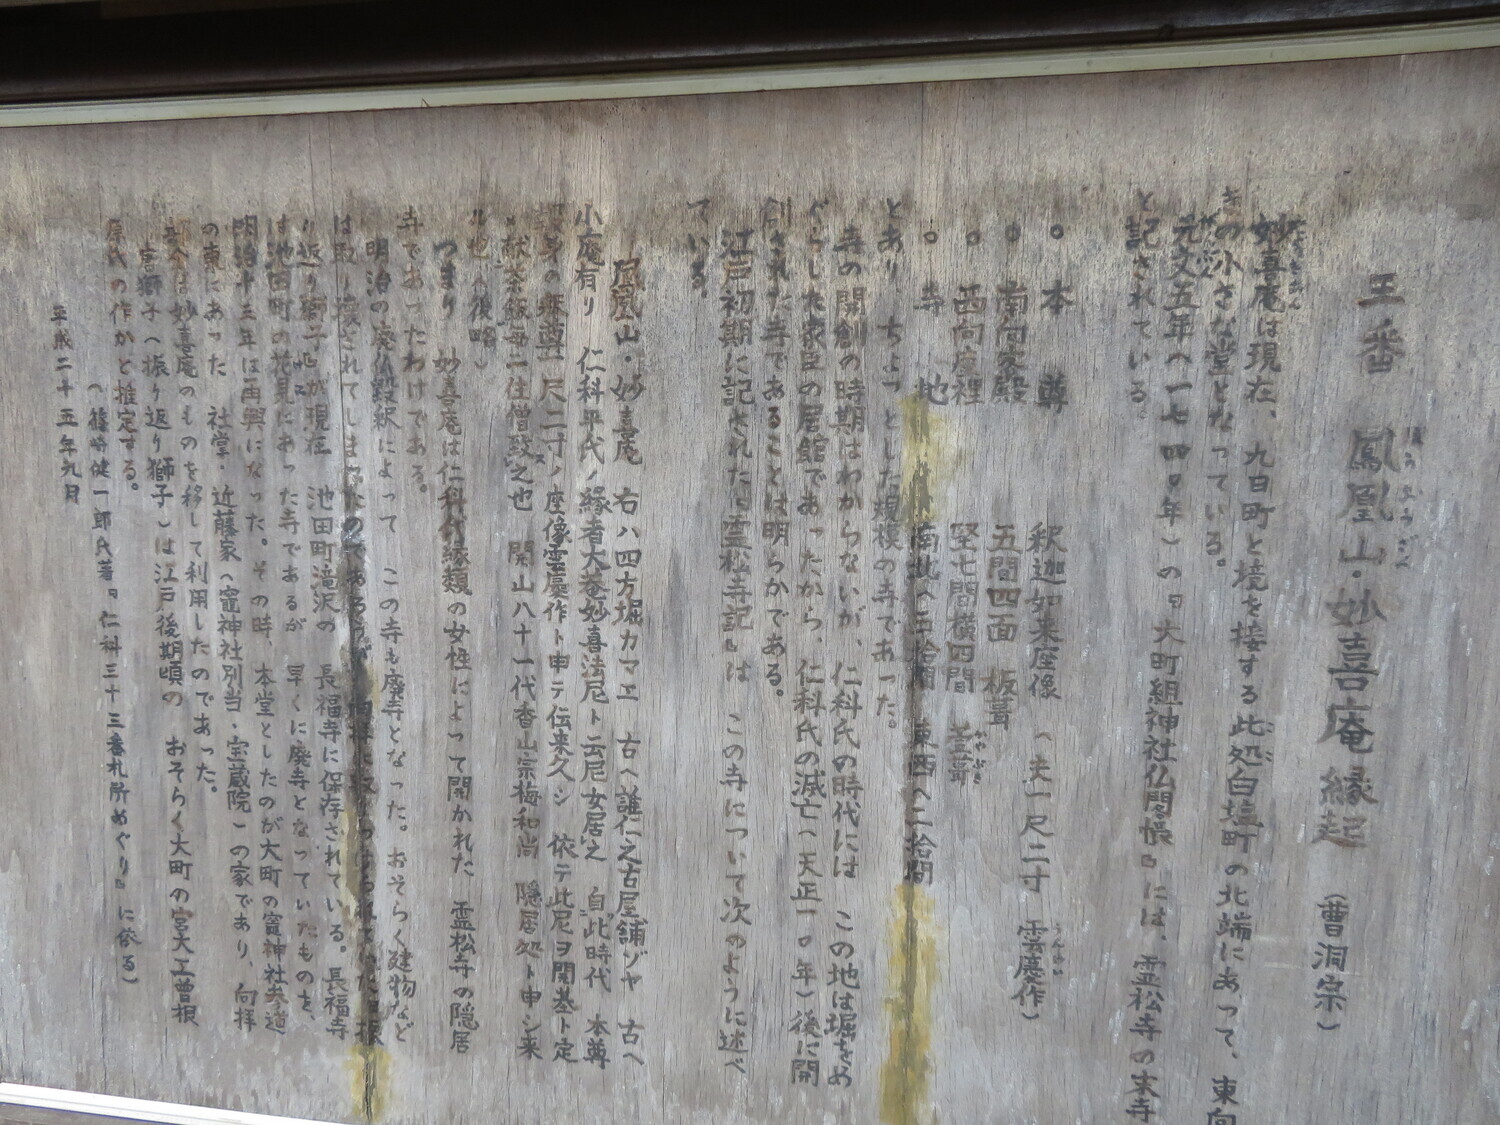 三番 鳳凰山・妙喜庵縁起 (曹洞宗)
妙喜庵は現在、九日町と境を接する此処白塩町の北端にあって、東向
きの小さな堂となっている。
元文五年(一七四〇年)の『大町組神社仏閣帳』には、霊松寺の末寺
と記されている。
○本尊 釈迦如来座像 (丈一尺二寸 雲慶作)
○南向客殿 五間四面 板葺
○西向庫裡 竪七間横四間 萱葺
○寺地 南北へ五拾間 東西へ二拾間
とあり、ちょっとした規模の寺であった。
寺の開創の時期はわからないが、仁科氏の時代には この地は堀をめ
ぐらした家臣の居館であったから、仁科氏の滅亡(天正一〇年)後に開
創された寺であることは明らかである。
江戸初期に記された『霊松寺記』は この寺について次のように述べ
ている。
鳳凰山・妙喜庵 右ハ四方堀カマエ 古ヘ誰仁之古屋舗ゾヤ 古ヘ
小庵有リ 仁科平氏ノ縁者大菴妙喜法尼ト云尼女居之 自此時代 本尊
身の 尊一尺二寸ノ座像雲慶作ト申テ伝来久シ 依テ此尼ヲ開基ト定
献茶飯毎ニ住僧致之也 開山八十一代香山宗梅和尚 隠居処ト申シ来
ル也(後略)
つまり 妙喜庵は仁科氏縁類の女性によって開かれた 霊松寺の隠居
寺であったわけである。
明治の廃仏毀釈によって この寺も廃寺となった。おそらく建物など
は取り壊されてしまったのであろうが、
り返り獅子』が現在 池田町滝沢の 長福寺に保存されている。長福寺
は池田町の花見にあった寺であるが 早くに廃寺となっていたものを、
明治十三年は再興になった。その時、本堂としたのが大町の竈神社参道
の東にあった 社堂・近藤家(竈神社別当・宝蔵院)の家であり、向拝
は妙喜庵のものを移して利用したのであった。
獅子(振り返り獅子)は江戸後期頃の おそらく大町の宮大工曽根
原氏の作かと推定する。
(篠崎健一郎氏著『仁科三十三番札所めぐり』に依る)
平成二十五年九月